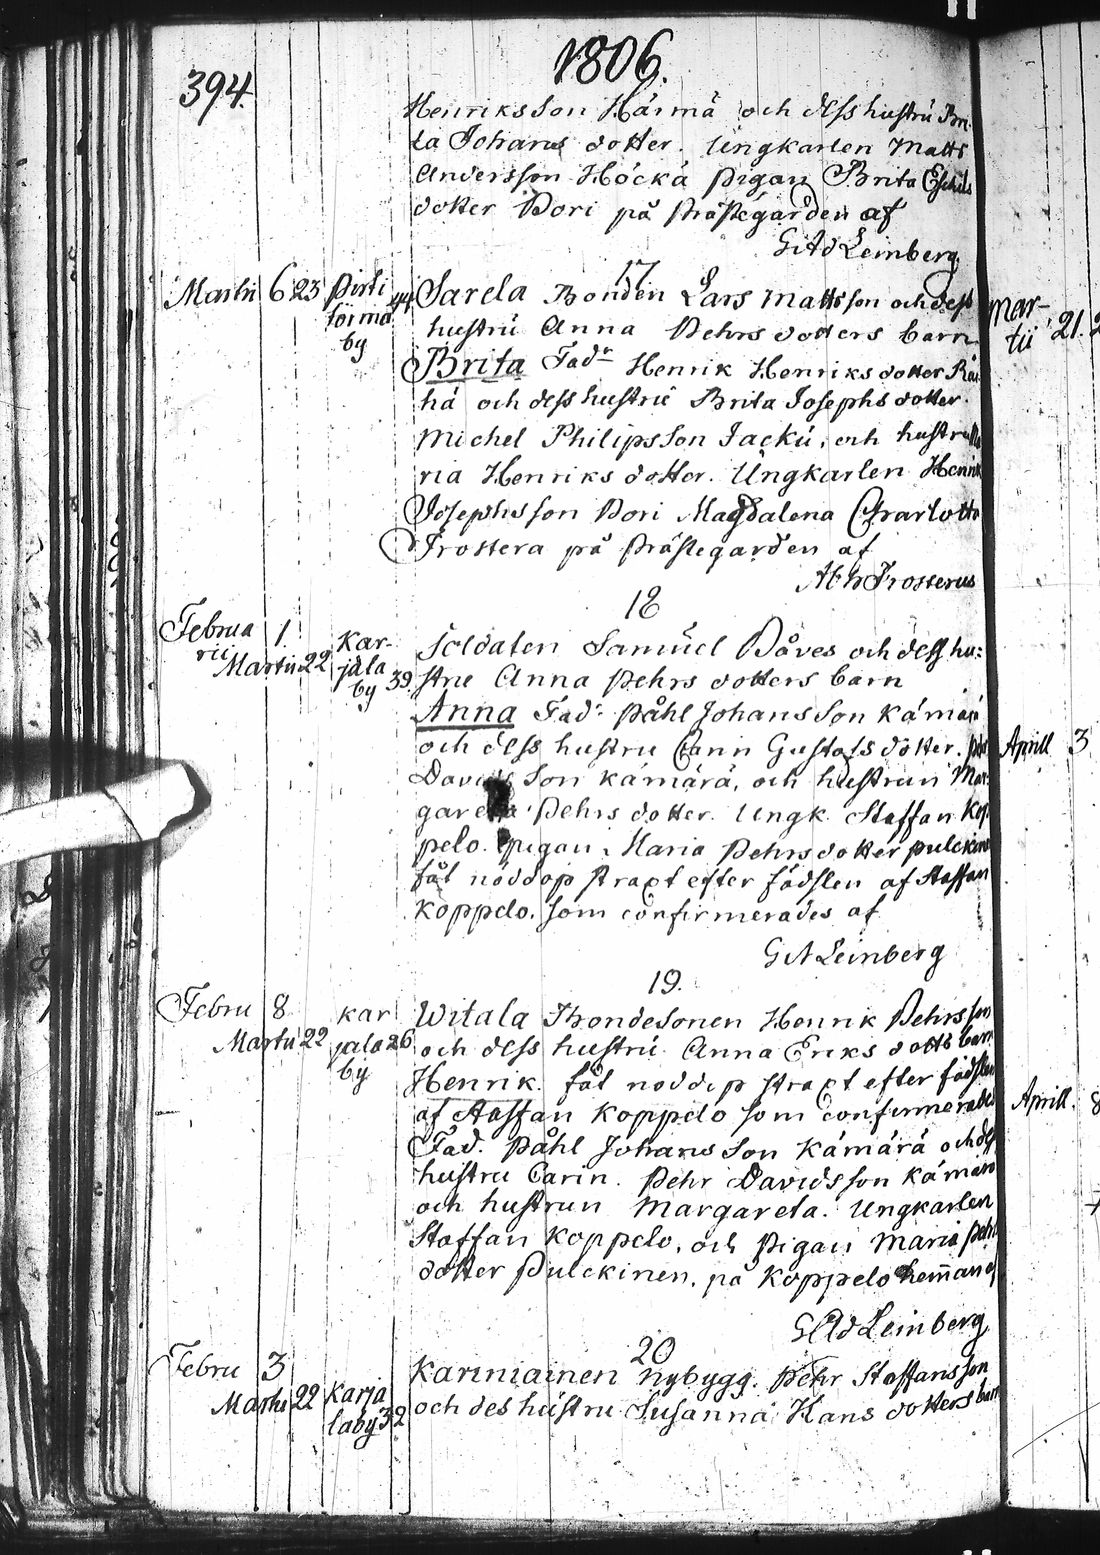 1806.
394.
Henriksson Härmä och dess hustru Bri-
ta Johans dotter. Ungkarlen Matts
Andersson Höckä pigan Brita Eskils
dotter Dori på prästegården af
G Ad Leinberg
17
Martii 6 23 Pirti
törmä
by 44 Sarela Bonden Lars Mattsson och dess
hustru Anna Pehrs dotters barn
Brita Fadr Henrik Henriks dotter Räi
hä och dess hustru Brita Josephs dotter.
Michel Philipsson Jackú, och hustru Ma
ria Henriks dotter. Ungkarlen Henrik
Josephsson Dori Magdalena Charlotta
Frostera på prästegården af
Ab h Frosterus
18
Februa
rii 1
Martii 22 Kar-
jala
by 39 Soldaten Samuel Dåves och dess hu:
stru Anna Pehrs dotters barn
Anna Fad. Påhl Johansson Kämärä
och dess hustru Carin Gustafs dotter. Pehr
Davids son Kämärä, och hustrun Mar-
gareta Pehrs dotter. Ungk. Staffan Kop
pelo. pigan Maria Pehrs dotter pulckinen
fåt nöddop straxt efter födslen af Staffan
Koppelo. som confirmerades af
G A Leinberg
19.
Febru 8
Martii 22 Kar
jala 26
by Witala Bondesonen Henrik Pehrsson
och dess hustru Anna Eriks dotts barn
Henrik. fåt noddop straxt efter födslen
af Staffan Koppelo som confirmerades
Fad. Påhl Johansson Kämärä och dess
hustru Carin. Pehr Davidsson Kämärä
och hustrun Margareta. Ungkarlen
Staffan Koppelo, och Pigan Maria Pehrs
dotter Pulckinen. på Koppelo hem̄an af
G Ad Leinberg
20
Febru 3
Martii 22 Karja
laby 32 Kariniainen nybygg. Pehr Staffansson
och des hustru Susanna Hans dotters barn
Mar-
tii 21. 2
Aprill 3
Aprill. 8